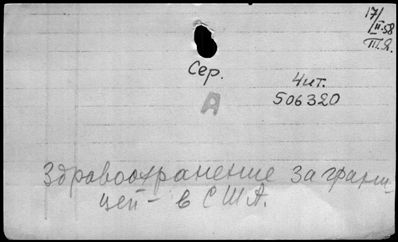 17/
II-58
III.Я.
Сер.
Чит.
506320
А
Здравоохранение за грани-
цей - в США.